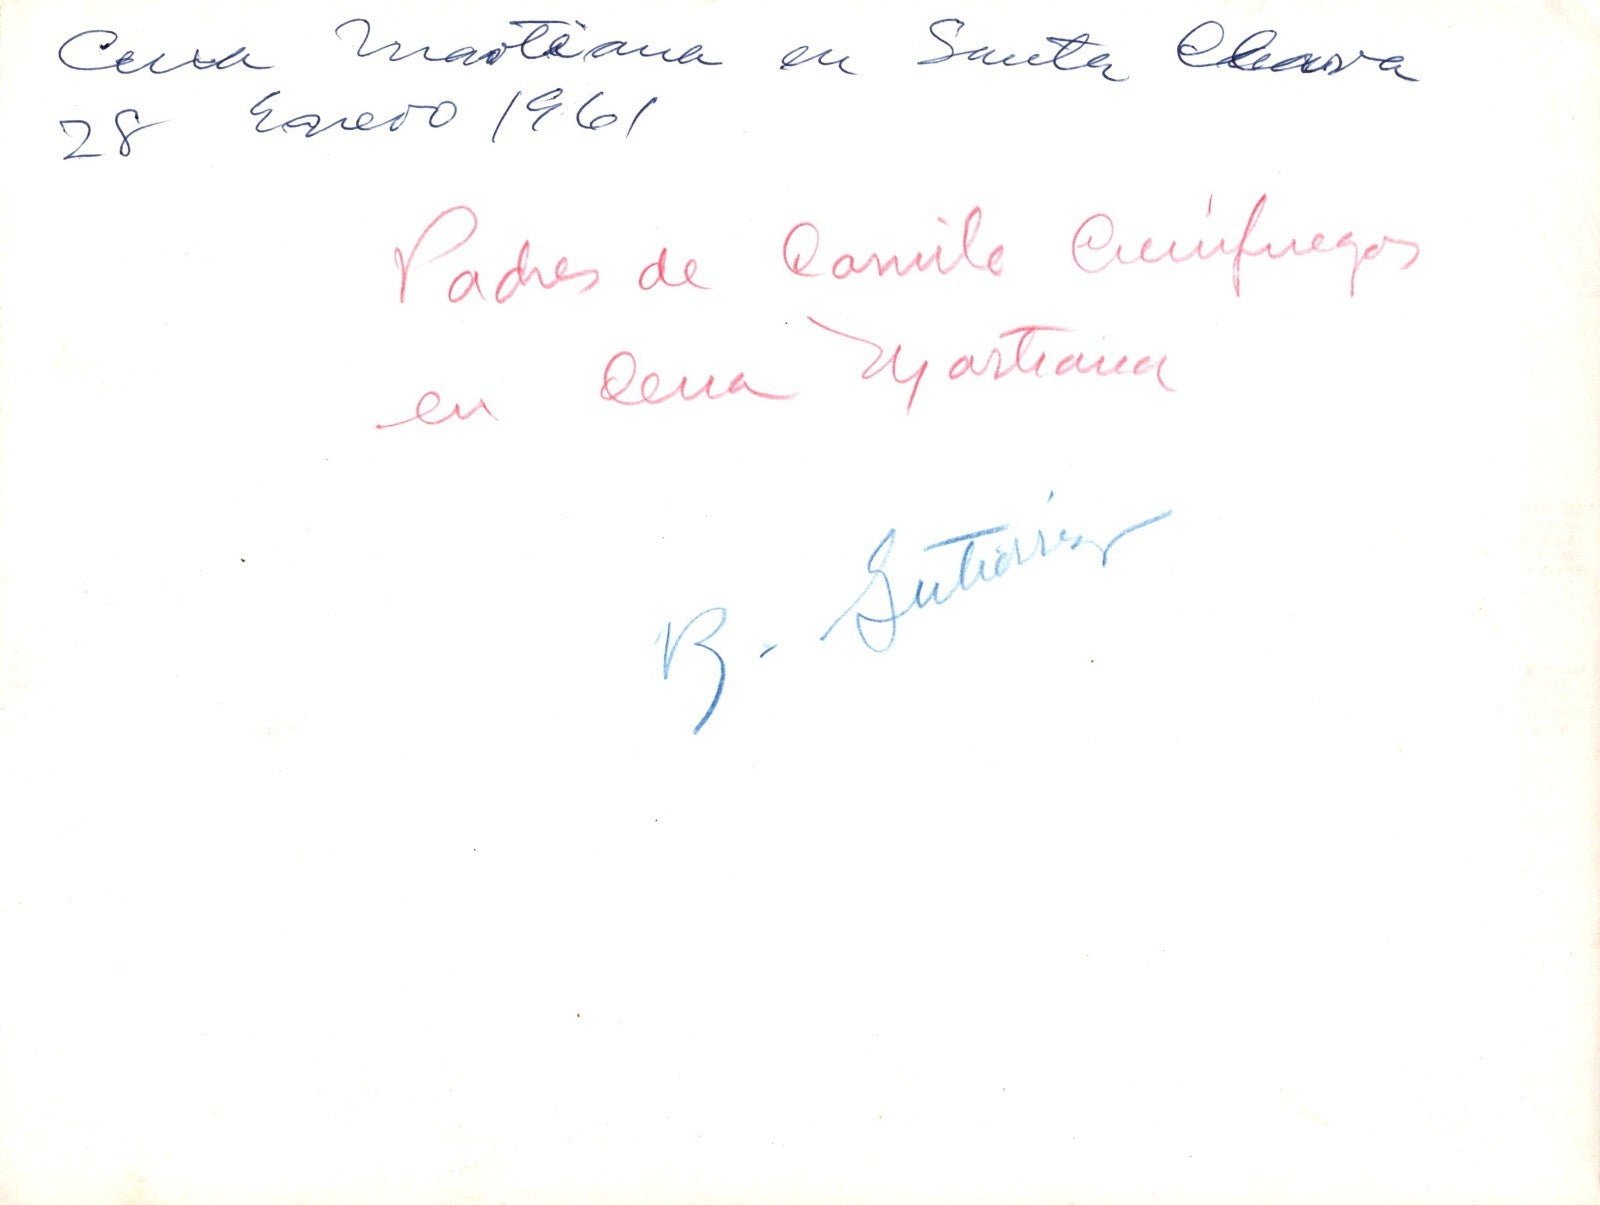 Cena Martiana en Santa Clara
28 Enero 1961
Padres de Camilo Cienfuegos
en Cena Martiana
B. Gutiérrez